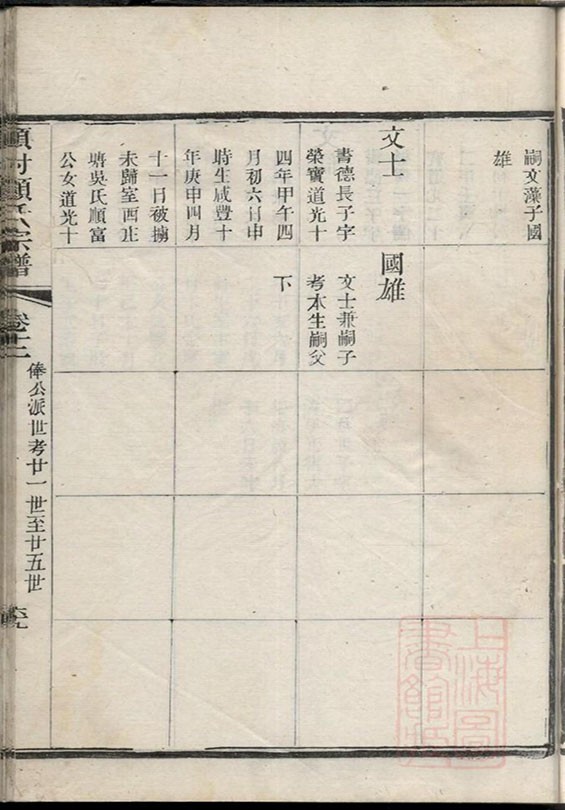 嗣文藻子國
雄
文士
書德長子字
榮寶道光十
四年甲午四
月初六日申
時生咸豐十
年庚申四月
十一日被擄
未歸室西正
塘吳氏順富
公女道光十
國雄
文士兼嗣子
考本生嗣父
下
顧氏宗譜
卷十二
俸公派世考廿一世至廿五世
六九
上海圖
書館藏